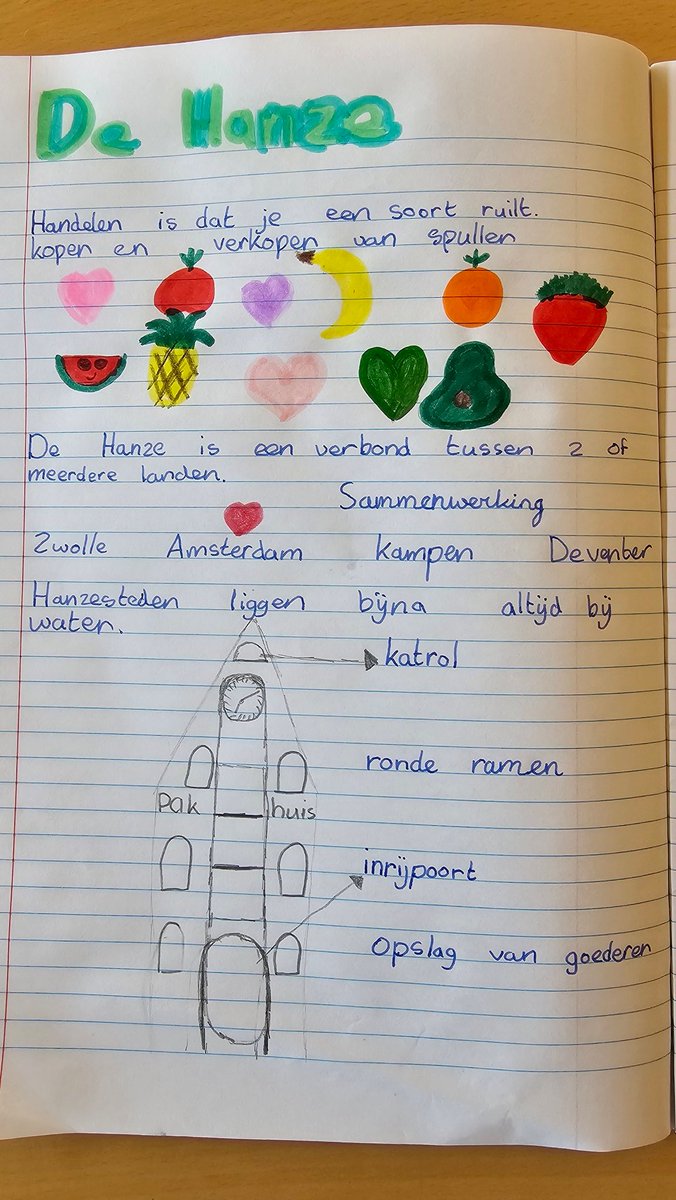 De Hanze
Handelen is dat je een soort ruilt.
kopen en verkopen van spullen
De Hanze is een verbond tussen 2 of
meerdere landen.
Sammenwerking
Zwolle Amsterdam kampen Devenber
Hanzesteden liggen bijna altijd bij
water.
katrol
ronde ramen
Pak huis
inrijpoort
opslag van goederen